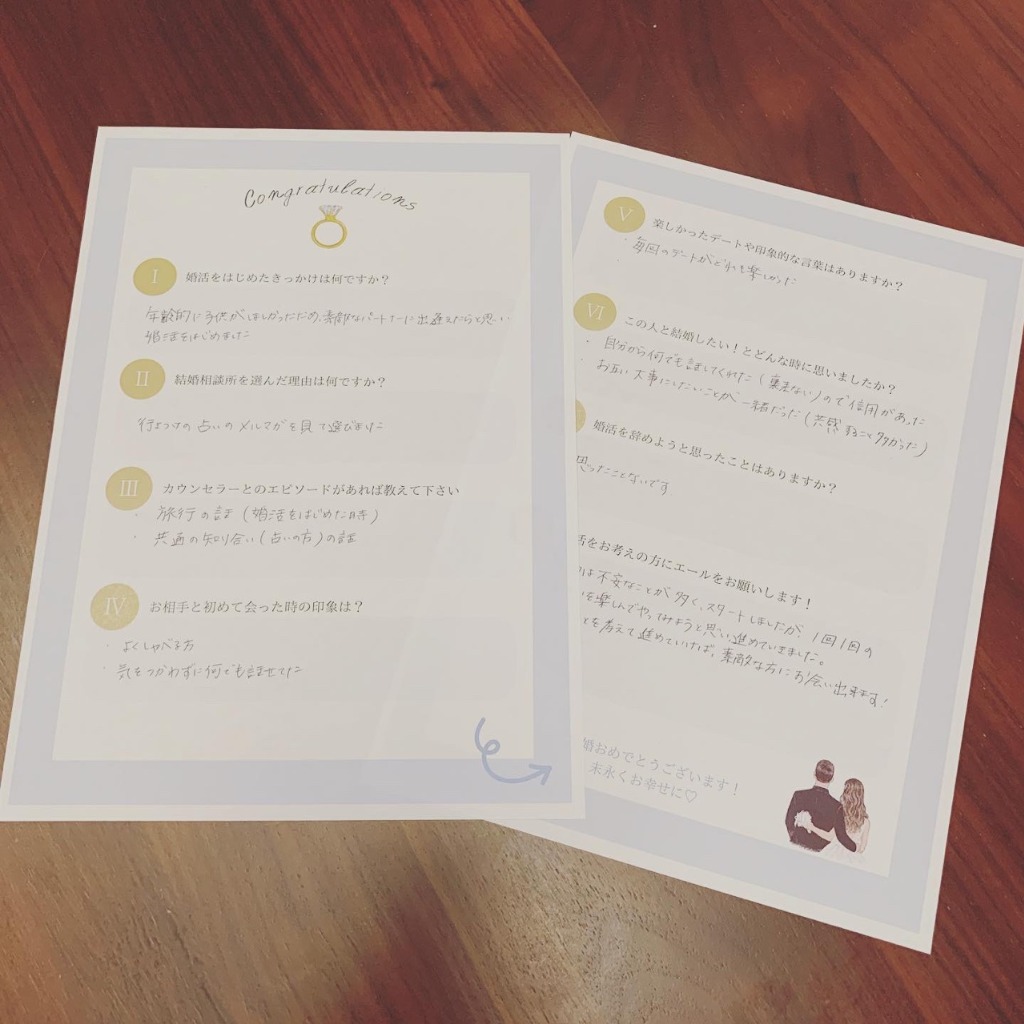 Congratulations
I 婚活をはじめたきっかけは何ですか？
年齢的に子供がほしかったため、素敵なパートナーに出逢えたらと思い
婚活をはじめました
II 結婚相談所を選んだ理由は何ですか？
行きつけの占いのメルマガを見て選びました
III カウンセラーとのエピソードがあれば教えて下さい
・旅行の話（婚活をはじめた時）
・共通の知り合い（占いの方）の話
IV お相手と初めて会った時の印象は？
・よくしゃべる方
・気をつかわずに何でも話せてた
V 楽しかったデートや印象的な言葉はありますか？
・毎回のデートがどれも楽しかった
VI この人と結婚したい！とどんな時に思いましたか？
・自分から何でも話してくれた（裏表ない）ので信用があった
お互い大事にしたいことが一緒だった（共感すること多かった）
婚活を辞めようと思ったことはありますか？
思ったことないです。
活をお考えの方にエールをお願いします！
は不安なことが多く、スタートしましたが、1回1回の
を楽しんでやってみようと思い、進めていきました。
とを考えて進めていけば、素敵な方にお会い出来ます！
婚おめでとうございます！
末永くお幸せに♡